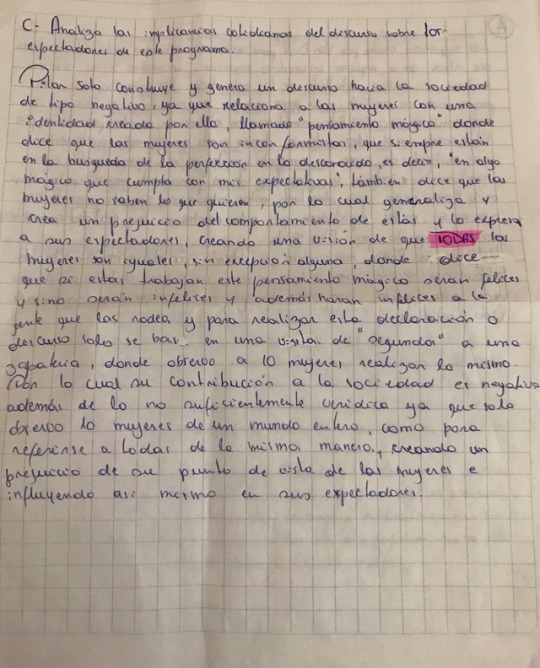 C- Analiza las implicancias cotidianas del discurso sobre los
espectadores de este programa.
Pilar Solo construye y genera un discurso hacia la sociedad
de tipo negativo, ya que relaciona a las mujeres con una
identidad creada por ella, llamado "pensamiento mágico" donde
dice que las mujeres son inconformistas, que siempre están
en la busqueda de la perfección en lo desconocido, es decir, "en algo
mágico que cumpla con mis expectativas", tambien dice que las
mujeres no saben lo que quieren, por lo cual generaliza y
crea un prejuicio del comportamiento de estás y lo expresa
a sus espectadores, creando una visión de que TODAS las
mujeres son iguales, sin excepción alguna, donde dice
que si estas trabajan este pensamiento mágico seran felices
y sino serán infelices y además haran infelices a la
gente que las rodea y para realizar esta declaración o
discurso solo se basa en una visita de "segundos" a una
zapateria, donde observo a 10 mujeres realizar lo mismo.
Por lo cual su contribución a la sociedad es negativa
además de lo no suficientemente veridica ya que solo
observo 10 mujeres de un mundo entero, como para
referirse a todas de la misma manera, creando un
prejuicio de su punto de vista de las mujeres e
influyendo asi mismo en sus espectadores.